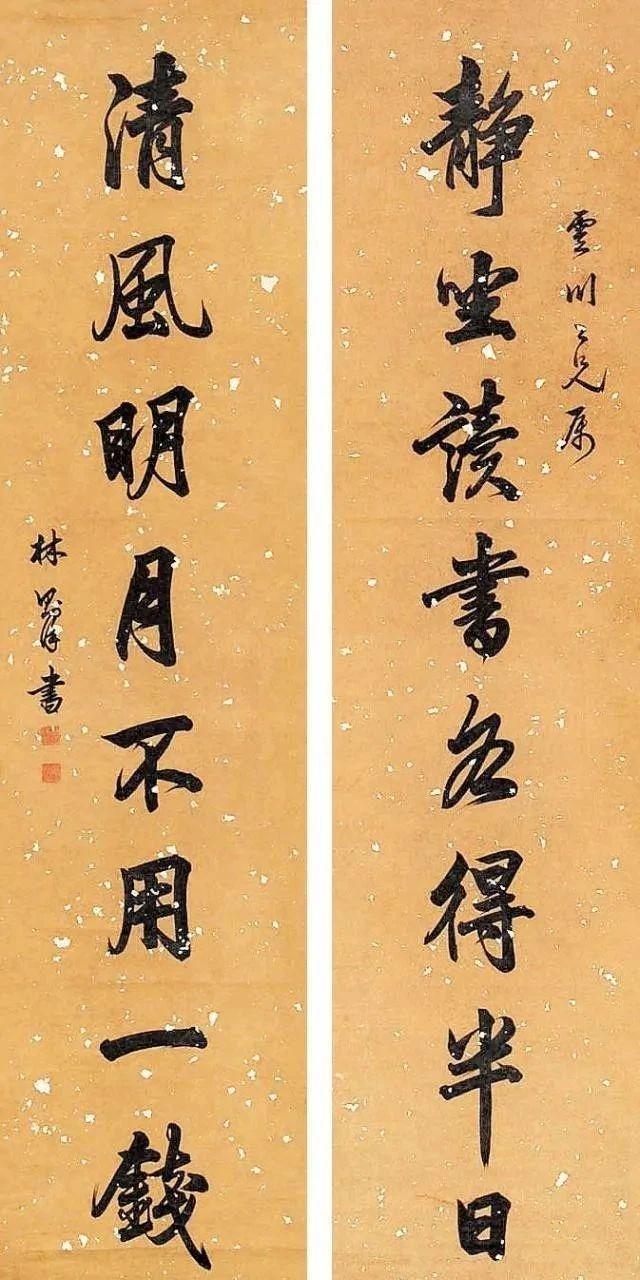 雲川兄属
靜坐讀書各得半日
清風明月不用一錢
林則徐書